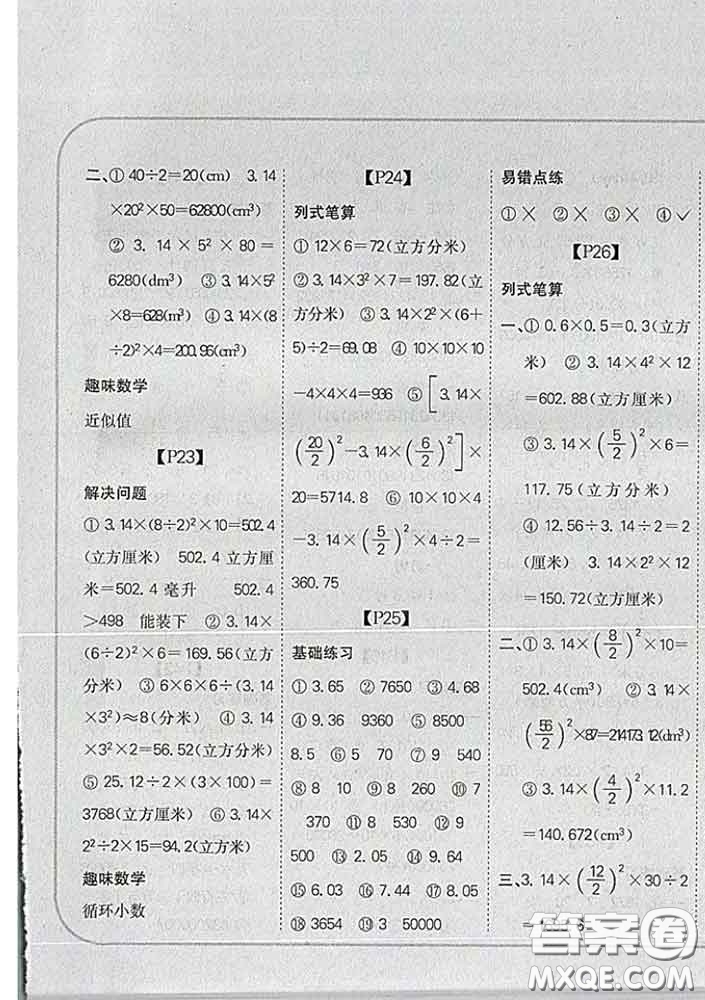 二、① 40÷2=20(cm)　3.14
×20²×50=62800(cm³)
② 3.14×5²×80=
6280(dm³)　③ 3.14×5²
×8=628(m³)　④ 3.14×(8
÷2)²×4=200.96(cm³)
趣味数学
近似值
【P23】
解决问题
① 3.14×(8÷2)²×10=502.4
(立方厘米)　502.4立方厘
米=502.4毫升　502.4
>498　能装下　② 3.14×
(6÷2)²×6=169.56(立方
分米)　③ 6×6×6÷(3.14
×3²)≈8(分米)　④ 3.14×
3²×2=56.52(立方分米)
⑤ 25.12÷2×(3×100)=
3768(立方厘米)　⑥ 3.14×
2²÷2×15=94.2(立方米)
趣味数学
循环小数
【P24】
列式笔算
① 12×6=72(立方分米)
② 3.14×3²×7=197.82(立
方分米)　③ 3.14×2²×(6+
5)÷2=69.08　④ 10×10×10
-4×4×4=936　⑤ [3.14×
(20/2)²-3.14×(6/2)²]×
20=5714.8　⑥ 10×10×4
-3.14×(5/2)²×4÷2=
360.75
【P25】
基础练习
① 3.65　② 7650　③ 4.68
④ 9.36　9360　⑤ 8500
8.5　⑥ 5　70　⑦ 9　540
⑧ 8　10　⑨ 8　260　⑩ 7
370　⑪ 8　530　⑫ 9
500　⑬ 2.05　⑭ 9.64
⑮ 6.03　⑯ 7.44　⑰ 8.05
⑱ 3654　⑲ 3　50000
易错点练
① ×　② ×　③ ×　④ ✓
【P26】
列式笔算
一、① 0.6×0.5=0.3(立方
米)　② 3.14×4²×12
=602.88(立方厘米)
③ 3.14×(5/2)²×6=
117.75(立方分米)
④ 12.56÷3.14÷2=2
(厘米)　3.14×2²×12
=150.72(立方厘米)
二、① 3.14×(8/2)²×10=
502.4(cm³)　② 3.14×
(56/2)²×87=214173.12(dm³)
③ 3.14×(4/2)²×11.2
=140.672(cm³)
三、3.14×(12/2)²×30÷2
答案圈
MXQE.COM